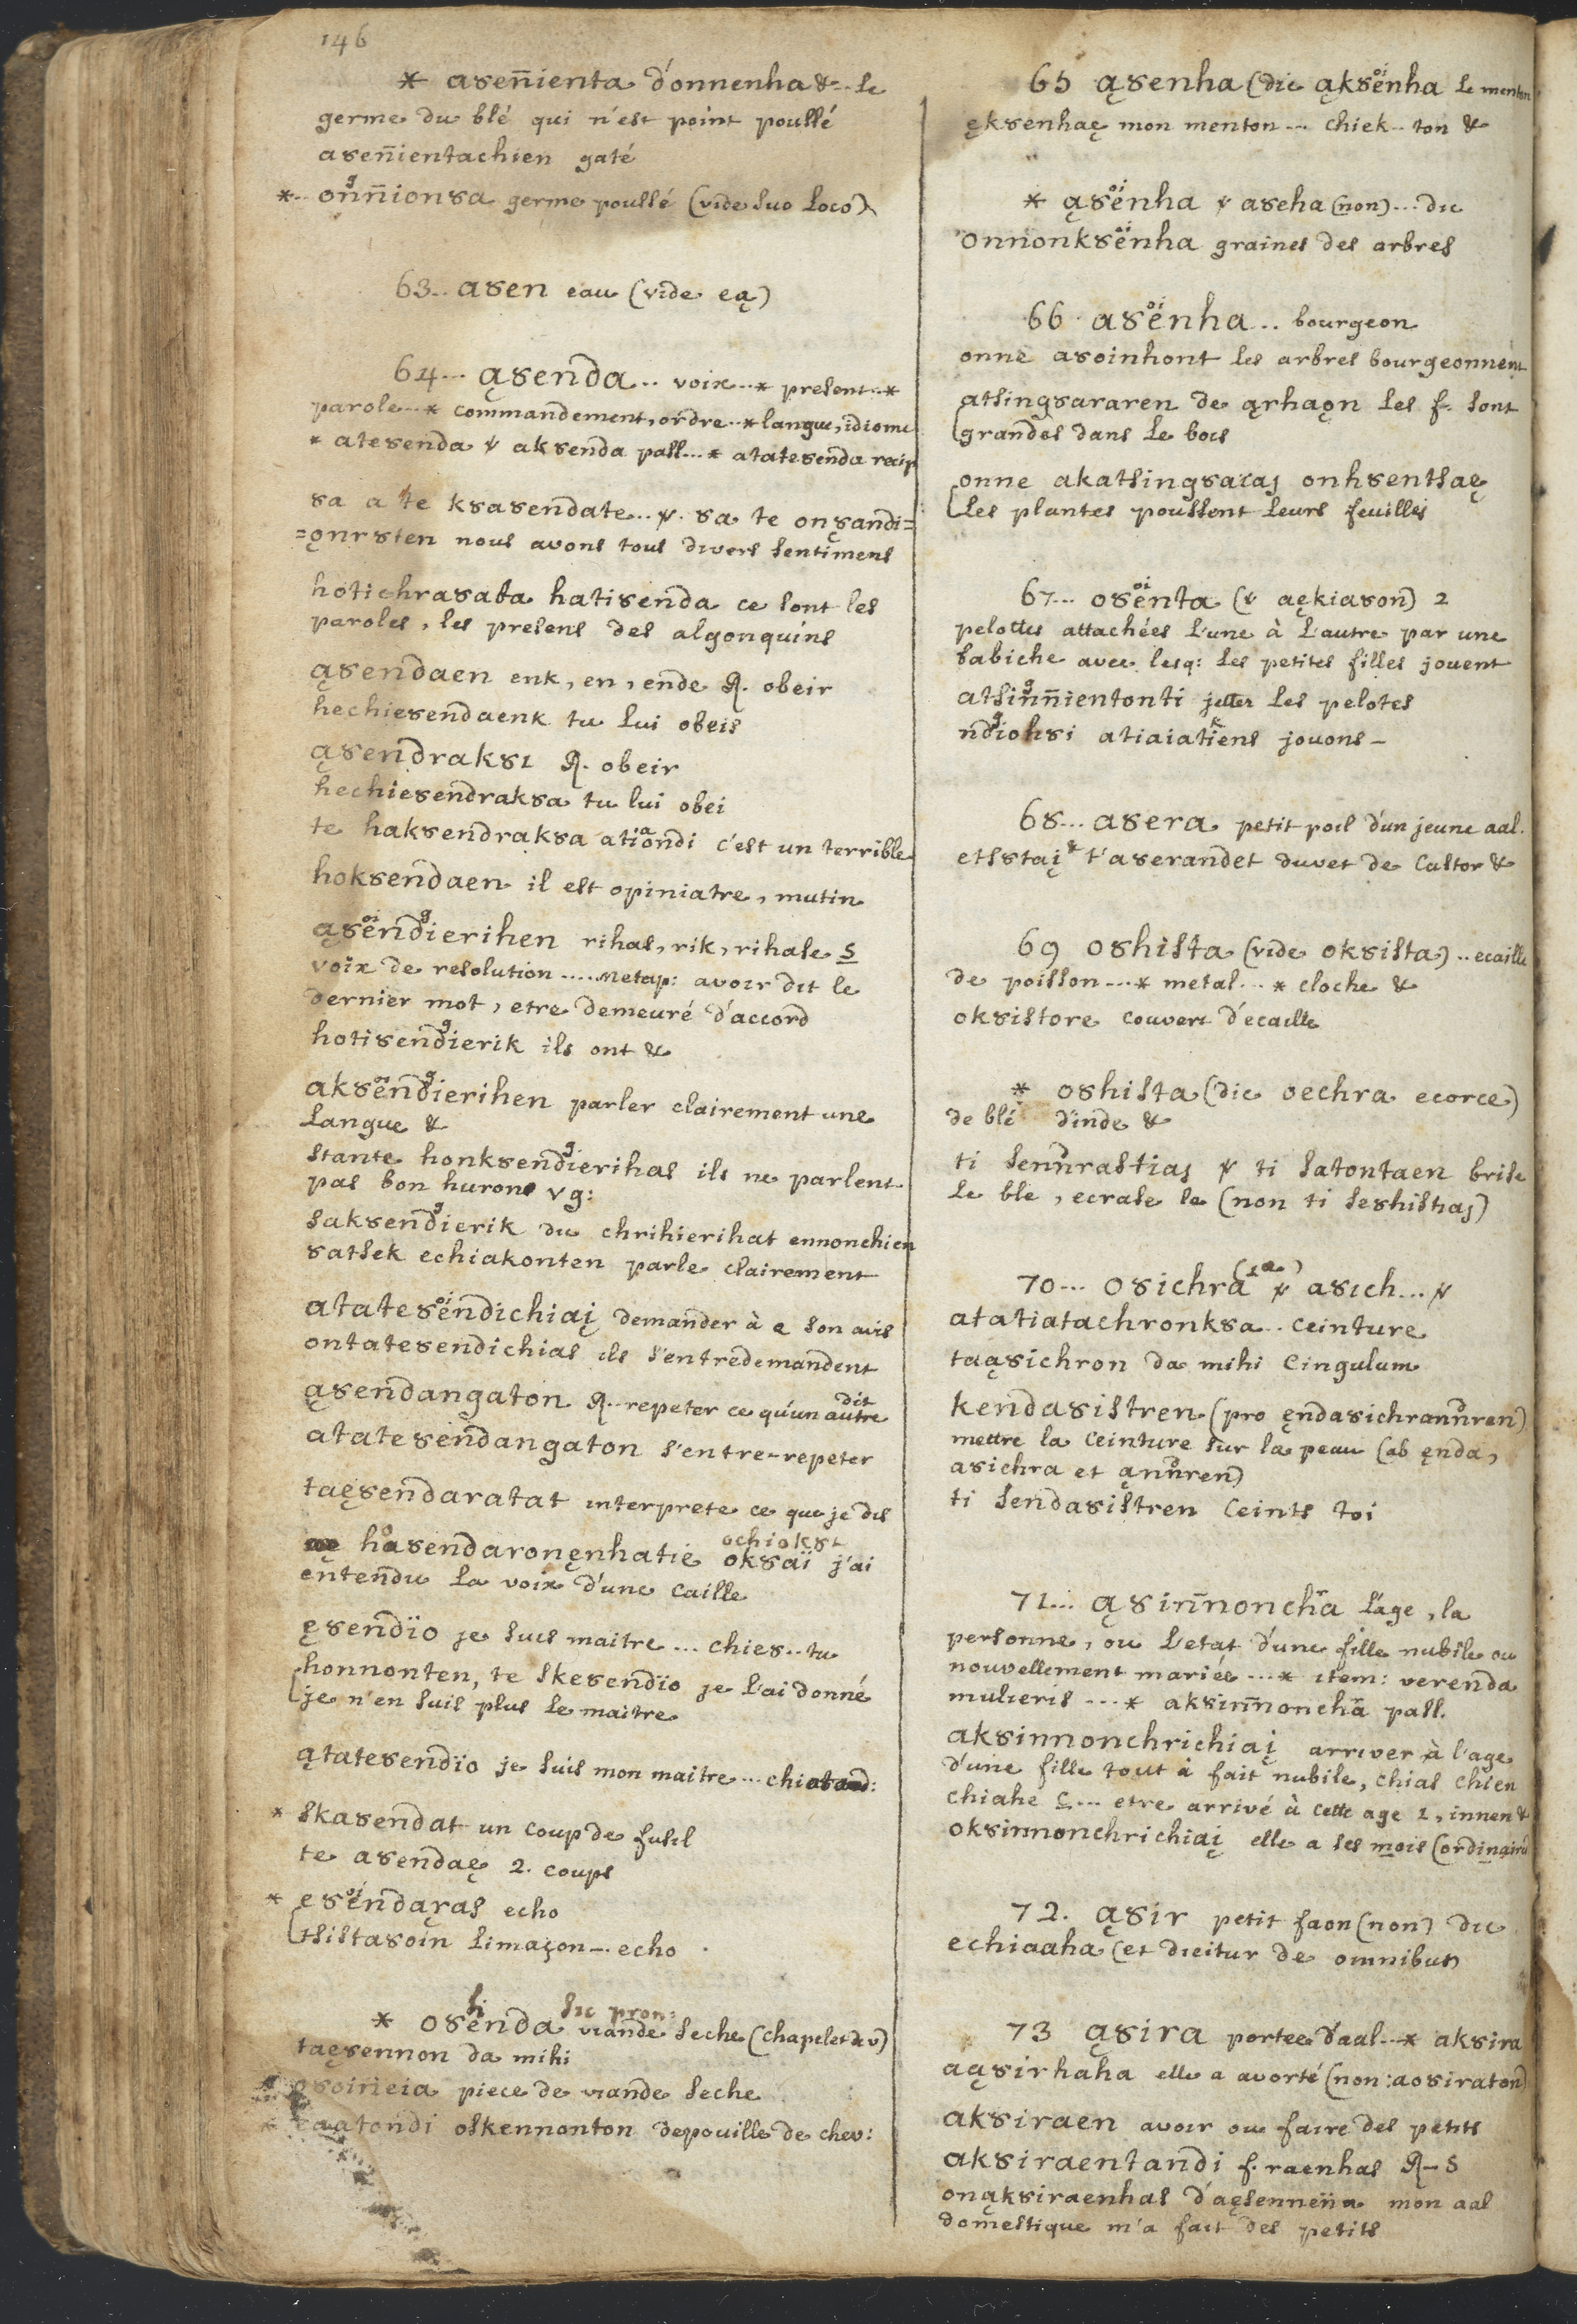 146
* a8en̄ienta d'onnenha &.. le
germe du blé qui n'est point poussé
a8en̄ientachien gaté
*.. on̄n̄ion8a germe poussé (vide suo loco)
63.. a8en eau (vide eą)
64... ą8enda.. voix..* present..*
parole..* commandement, ordre..* langue, idiome
* ate8enda v ak8enda pass...* atate8enda recip
8a a te k8a8endate.. v. 8a te on8andi=
=ǫnr8ten nous avons tous divers sentimens
hotichra8ata hati8enda ce sont les
paroles, les presens des algonquins
ą8endaen enk, en, ende R. obeir
hechie8endaenk tu lui obeis
ą8endrak8i R. obeir
hechie8endrak8a tu lui obei
te hak8endrak8a ationdi c'est un terrible
hok8endaen il est opiniatre, mutin
ą8endierihen rihas, rik, rihase S
voix de resolution ..... Metap: avoir dit le
dernier mot, etre demeuré d'accord
hoti8endierik ils ont &
ak8endierihen parler clairement une
Langue &
stante honk8endierihas ils ne parlent
pas bon huron vg:
sak8endierik du chrihierihat ennonchien
8atsek echiakonten parle clairement
atate8endichiaį demander à q son avis
ontate8endichias ils s'entredemandent
ą8endangaton R.. repeter ce qu'un autre dit
atate8endangaton s'entre-repeter
taę8endaratat interprete ce que je dis
h8a8endaronęnhatie ochiok8i ok8aï j'ai
entendu la voix d'une caille
ę8endïo je suis maitre ... chie8.. tu
honnonten, te ske8endïo je l'ai donné
je n'en suis plus le maitre
ątate8endïo je suis mon maitre ...
* ska8endat un coup de fusil
te a8endaę 2. coups
* e8endąras echo
tsista8oin limaçon -. echo
* o8enda sic pron: viande seche (chapelet &c)
taę8ennon da mihi
piece de viande seche
oskennonton depouille de chev:
65 ą8enha (dic ąk8enha le menton
ęk8enhaę mon menton ... chiek.. ton &
* ą8enha v a8eha (non) ... dic
onnonk8enha graines des arbres
66. a8enha.. bourgeon
onne a8oinhont les arbres bourgeonnent
atsing8araren de ąrhaǫn les f. sont
grandes dans le bois
onne akatsing8araj onh8entsaę
les plantes poussent leurs feuilles
67... o8enta (v aękia8on) 2
pelottes attachées l'une à l'autre par une
babiche avec lesq: les petites filles jouent
atsin̄n̄ientonti jetter les pelotes
ndioh8i atiaiatiens jouons -
68... a8era petit poil d'un jeune aal.
etsstaį t'a8erandet duvet de castor &
69 o8hista (vide ok8ista).. ecaille
de poisson...* metal...* cloche &
ok8istore couvert d'ecaille
* o8hista (dic oechra ecorce)
de blé d'inde &
ti sennrastiaj v ti satontaen brise
le blé, ecrase le (non ti se8histiaj)
70... o8ichra v a8ich... v
atatiatachronk8a.. ceinture
taą8ichron da mihi cingulum
kenda8istren (pro ęnda8ichrannren)
mettre la ceinture sur la peau (ab ęnda,
a8ichra et ąnnren)
ti senda8istren ceints toi
71... ą8in̄noncha l'age, la
personne, ou l'etat d'une fille nubile ou
nouvellement mariée ...* item: verenda
mulieris ...* ak8in̄noncha pass.
ak8innonchrichiaį arriver à l'age
d'une fille tout à fait nubile, chias chien
chiahe C... etre arrivé à cette age 2, innen &
ok8innonchrichiaį elle a ses mois (ordinaires
72. ą8ir petit faon (non) dic
echiaaha (et dicitur de omnibus)
73 ą8ira portee d'aal..* ak8ira
aą8irhaha elle a avorté (non: ao8iraton)
ak8iraen avoir ou faire des petits
ak8iraentandi f. raenhas R - S
oną k8iraenhas d'aęsennen̈a mon aal
domestique m'a fait des petits